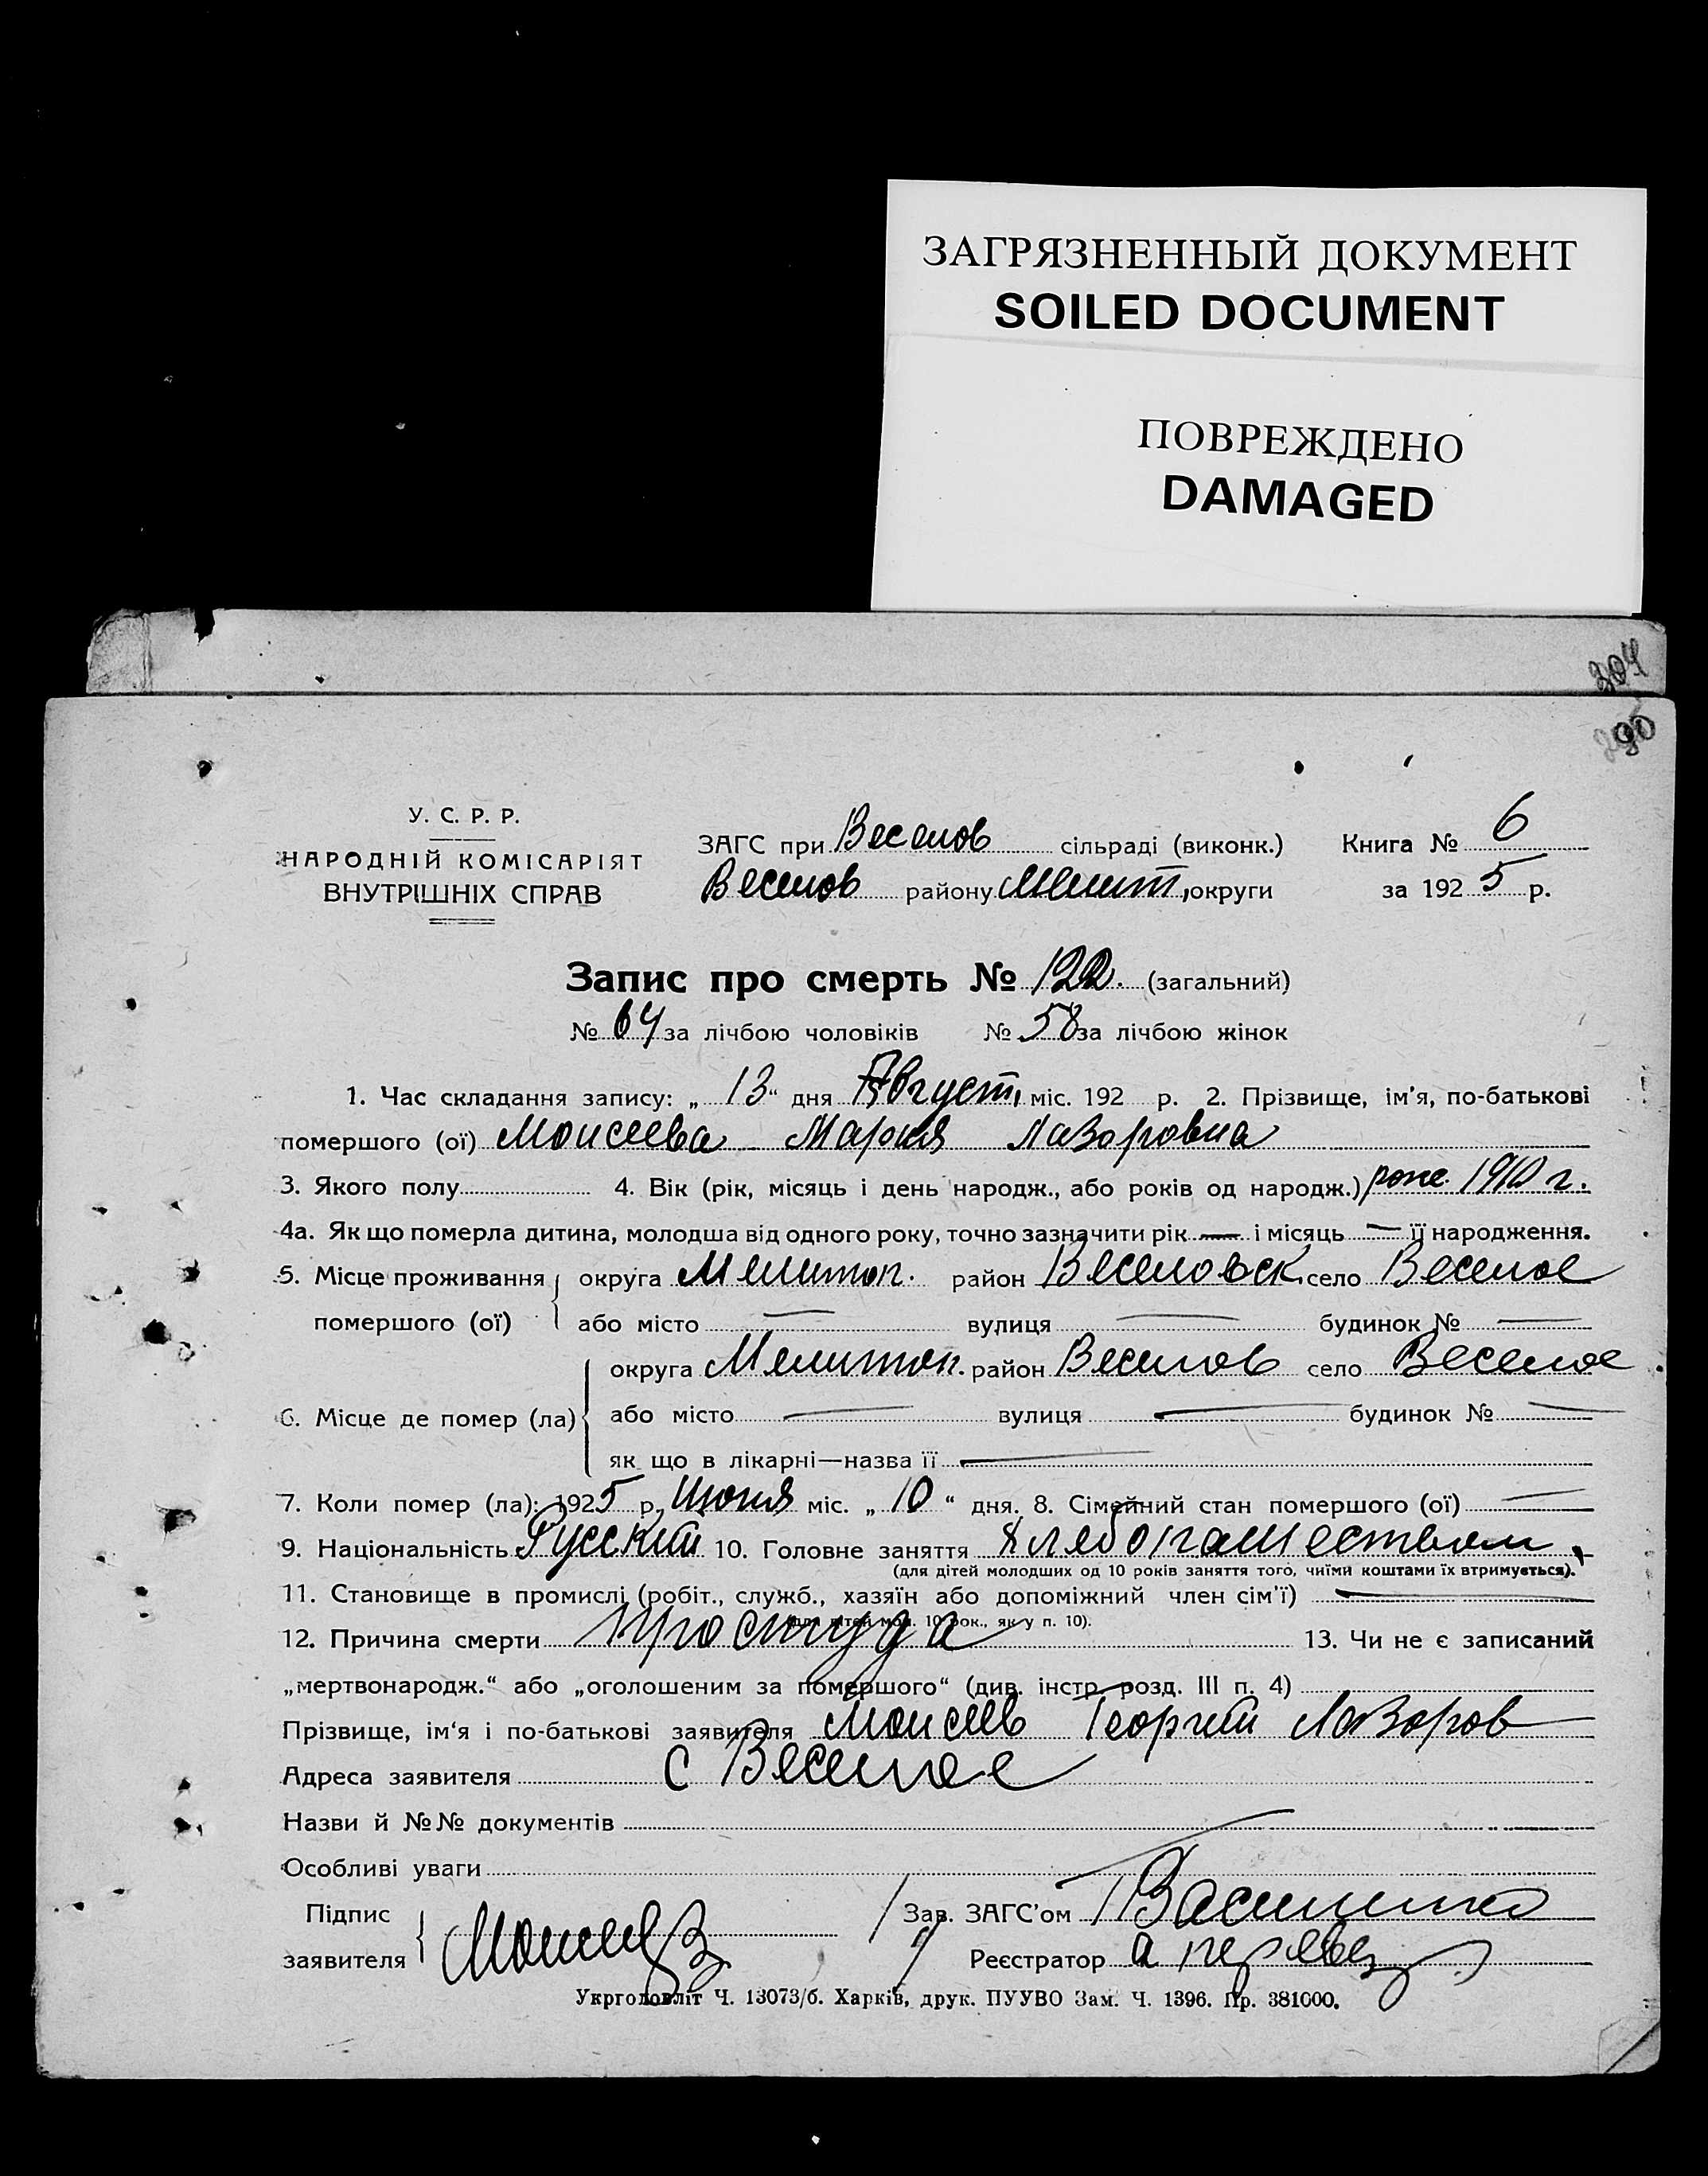 ЗАГРЯЗНЕННЫЙ ДОКУМЕНТ
SOILED DOCUMENT
ПОВРЕЖДЕНО
DAMAGED
304
90
У. С. Р. Р.
НАРОДНІЙ КОМІСАРІЯТ
ВНУТРІШНІХ СПРАВ
ЗАГС при Веселов сільраді (виконк.) Книга № 6
Веселов району Мелит, округи за 1925 р.
Запис про смерть № 122. (загальний)
№ 64 за лічбою чоловіків № 58 за лічбою жінок
1. Час складання запису: „13“ дня Август, міс. 192 р. 2. Прізвище, ім'я, по-батькові
помершого (ої) Моисеева Мария Лазоровна
3. Якого полу 4. Вік (рік, місяць і день народж., або років од народж.) рож. 1910 г.
4а. Як що померла дитина, молодша від одного року, точно зазначити рік — і місяць — її народження.
5. Місце проживання округа Мелитоп. район Веселовск. село Веселое
помершого (ої) або місто — вулиця — будинок № —
округа Мелитоп. район Веселов село Веселое
6. Місце де помер (ла) або місто — вулиця — будинок № —
як що в лікарні—назва її —
7. Коли помер (ла): 1925 р. Июня міс. „10“ дня. 8. Сімейний стан помершого (ої) —
9. Національність Русский 10. Головне заняття Хлебопашеством.
(для дітей молодших од 10 років заняття того, чиїми коштами їх втримується).
11. Становище в промислі (робіт., служб., хазяїн або допоміжний член сім'ї) —
(для дітей мол. 10 рок., як у п. 10).
12. Причина смерти простуда 13. Чи не є записаний
„мертвонародж.“ або „оголошеним за помершого“ (див. інстр. розд. III п. 4)
Прізвище, ім'я і по-батькові заявителя Моисеев Георгий Лазоров
Адреса заявителя с Веселое
Назви й №№ документів
Особливі уваги
Підпис Зав. ЗАГС'ом
заявителя Моисеев Реєстратор
Укрголовліт Ч. 13073/б. Харків, друк. ПУУВО Зам. Ч. 1396. Пр. 381000.